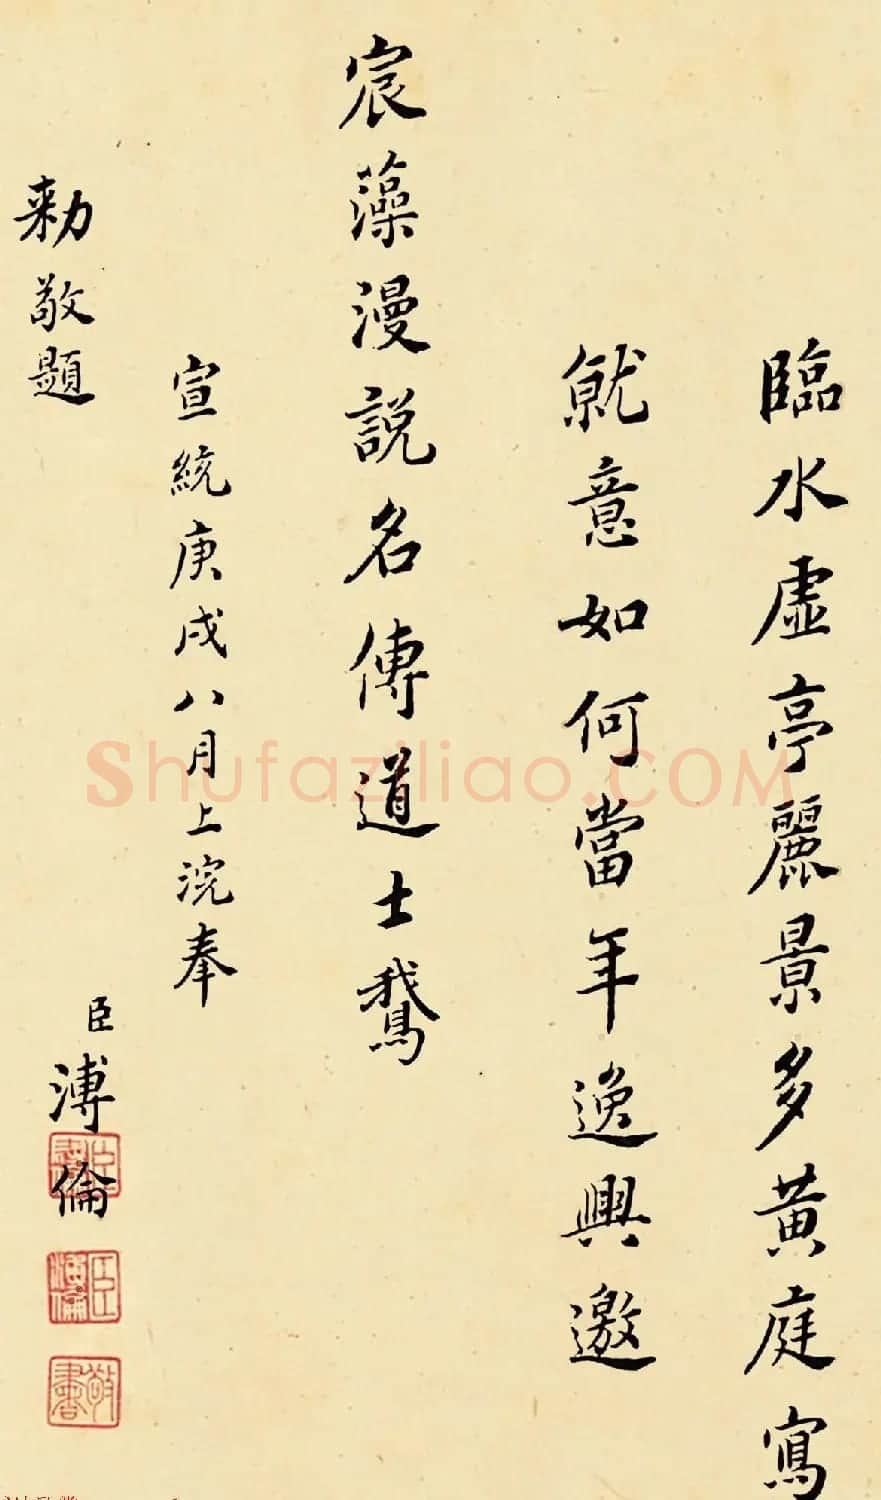 臨水虛亭麗景多黃庭寫
就意如何當年逸興邀
宸藻漫說名傳道士鵞
宣統庚戌八月上浣奉
勅敬題
臣溥倫
臣溥倫
敬書
Shufaziliao.COM